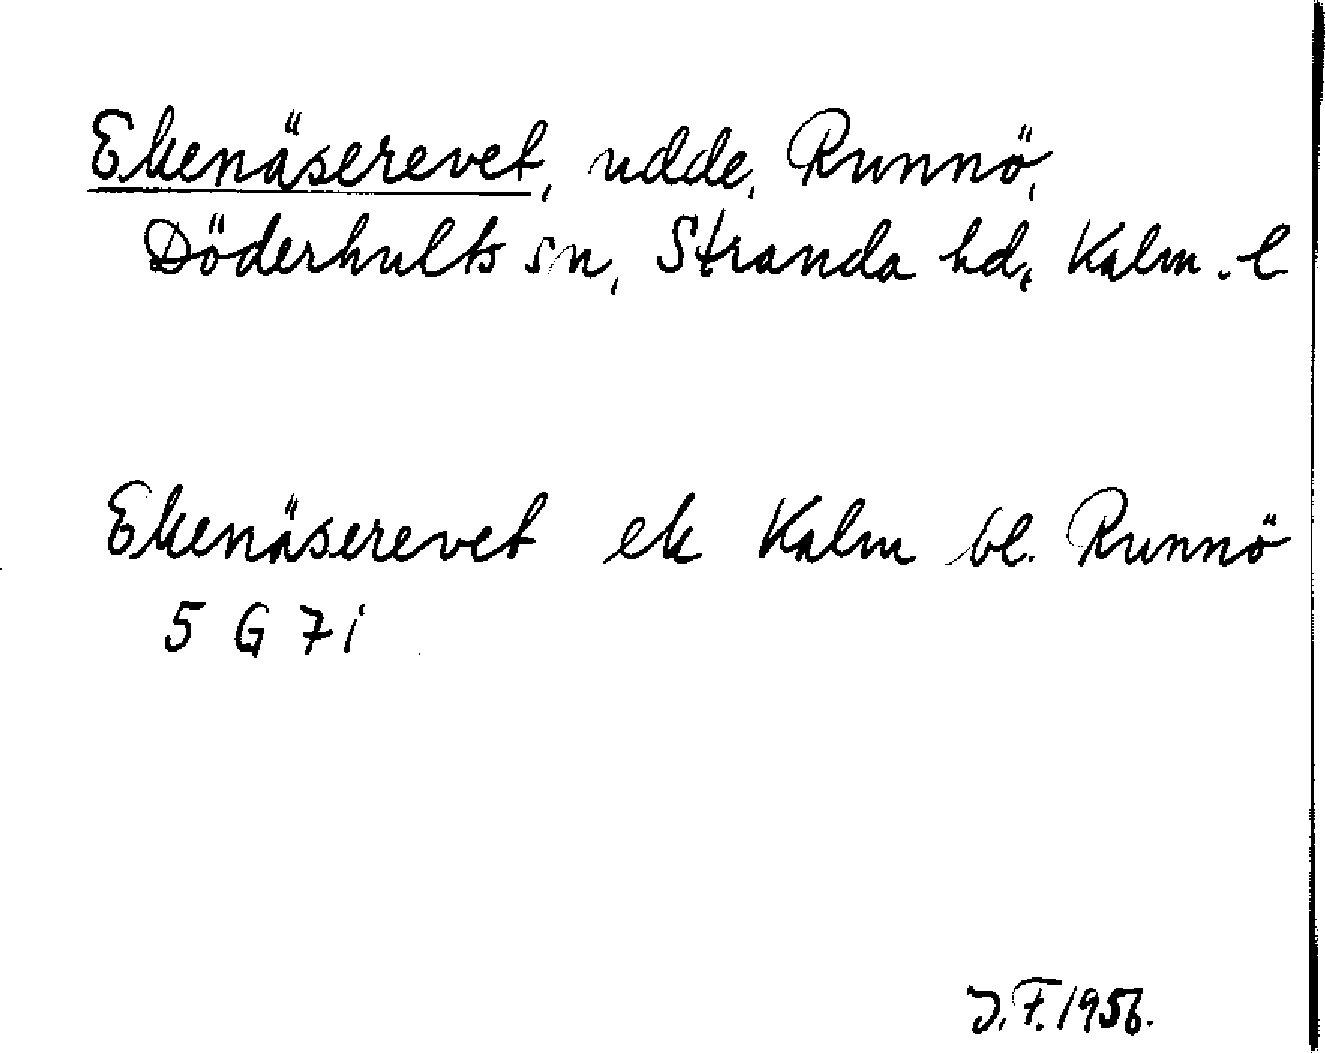 Ekenäserevet, udde, Runnö,
Döderhults sn, Stranda hd, Kalm. l
Ekenäserevet ek Kalm bl. Runnö
5 G 7i
J.F. 1956.